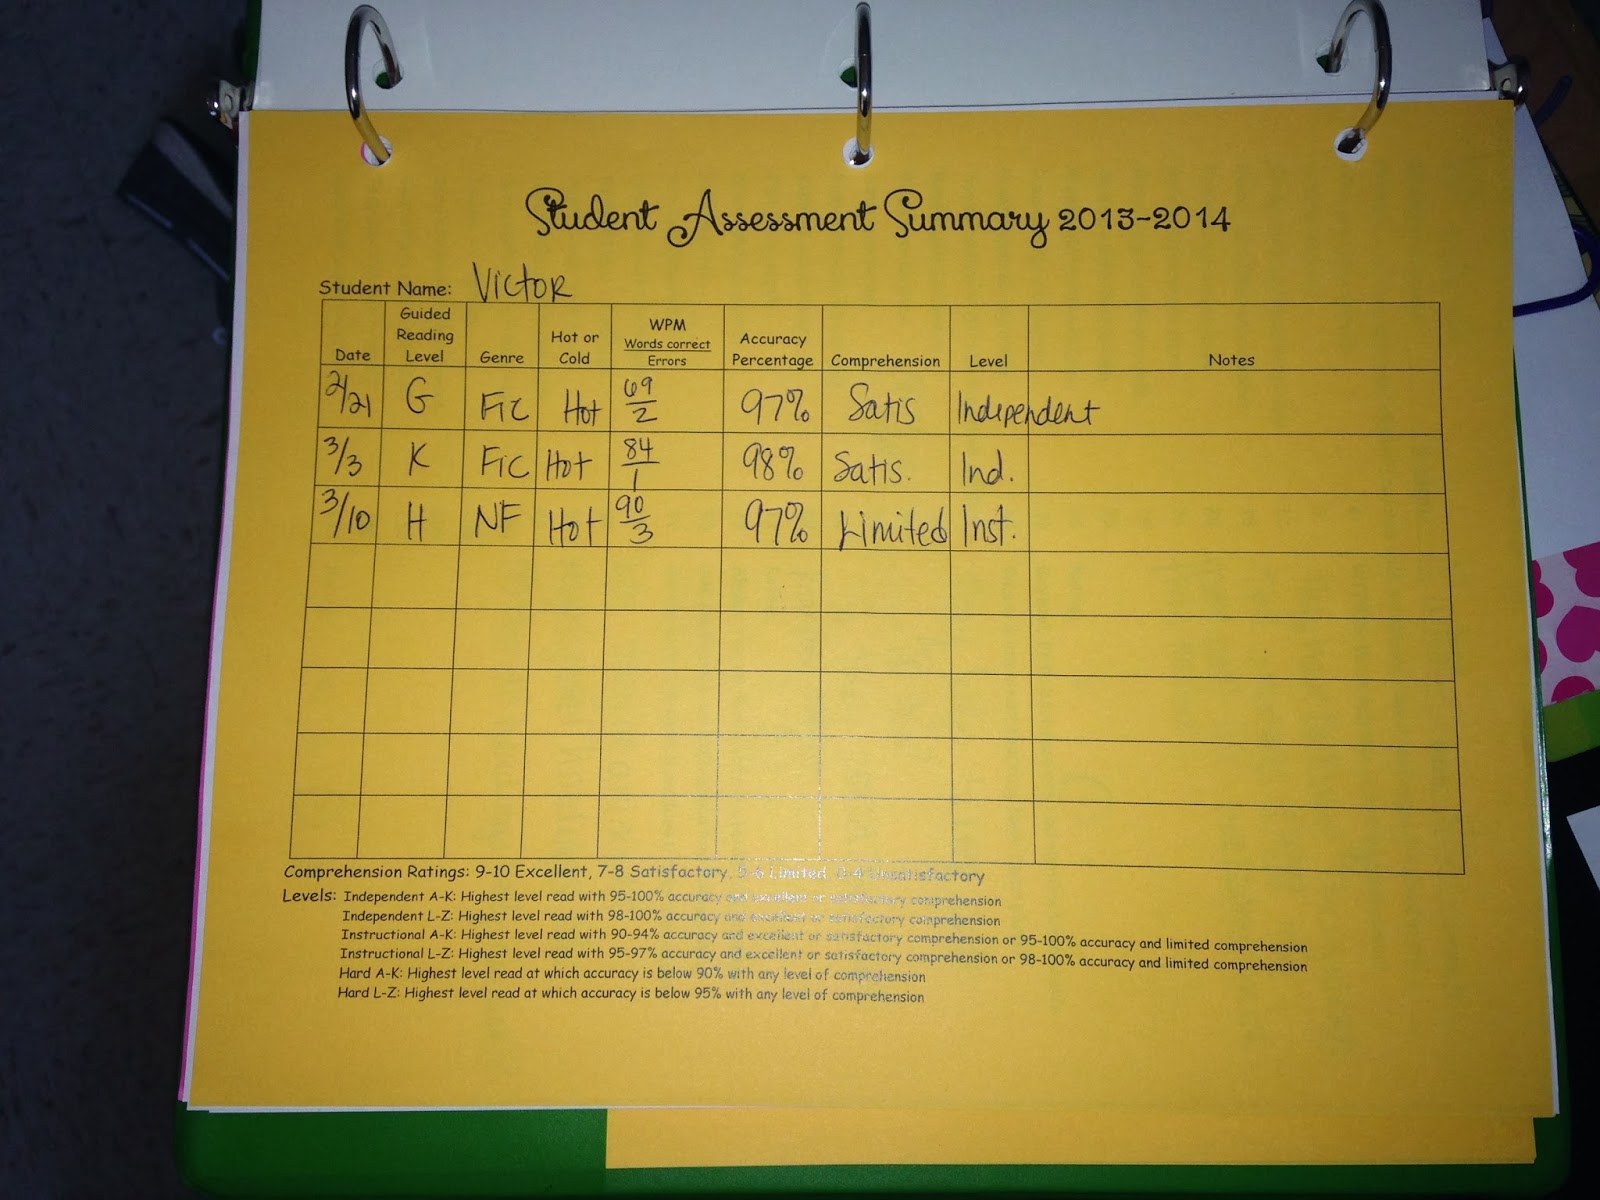 Student Assessment Summary 2013-2014
Student Name: Victor
Date Guided Reading Level Genre Hot or Cold WPM Words correct Errors Accuracy Percentage Comprehension Level Notes
2/21 G Fic Hot 69/2 97% Satis Independent
3/3 K Fic Hot 84/1 98% Satis. Ind.
3/10 H NF Hot 90/3 97% Limited Inst.
Comprehension Ratings: 9-10 Excellent, 7-8 Satisfactory, 5-6 Limited, 0-4 Unsatisfactory
Levels: Independent A-K: Highest level read with 95-100% accuracy and excellent or satisfactory comprehension
Independent L-Z: Highest level read with 98-100% accuracy and excellent or satisfactory comprehension
Instructional A-K: Highest level read with 90-94% accuracy and excellent or satisfactory comprehension or 95-100% accuracy and limited comprehension
Instructional L-Z: Highest level read with 95-97% accuracy and excellent or satisfactory comprehension or 98-100% accuracy and limited comprehension
Hard A-K: Highest level read at which accuracy is below 90% with any level of comprehension
Hard L-Z: Highest level read at which accuracy is below 95% with any level of comprehension